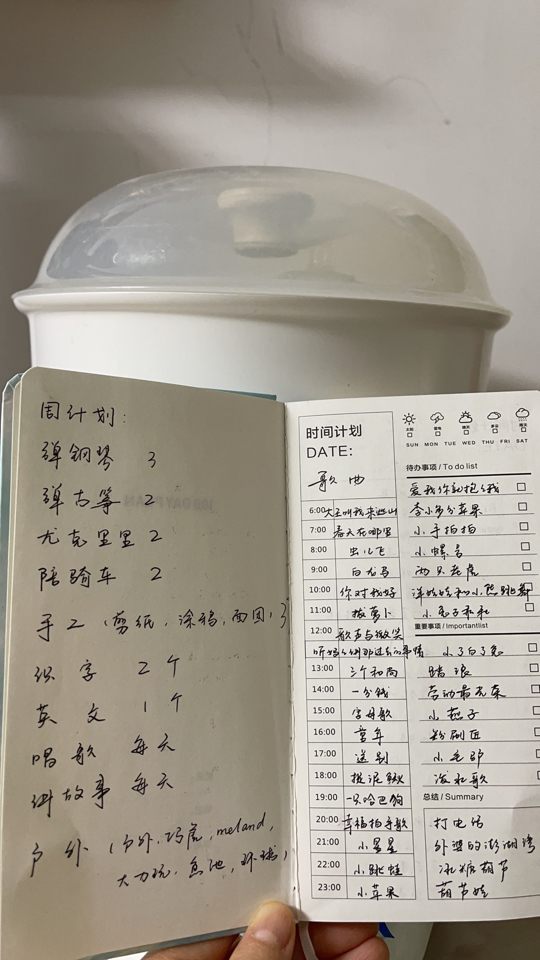 周计划:
弹钢琴 3
弹古筝 2
尤克里里 2
陪骑车 2
手工(剪纸,涂鸦,画图)3
识字 2个
英文 1个
唱歌 每天
讲故事 每天
户外(户外,巧虎,meland,
大力玩,鱼池,
时间计划
DATE:
歌池
6:00 大王叫我来巡山
7:00 春天在哪里
8:00 虫儿飞
9:00 白龙马
10:00 你对我好
11:00 拔萝卜
12:00 歌声与微笑
听妈妈讲那过去的事情
13:00 三个和尚
14:00 一分钱
15:00 字母歌
16:00 童年
17:00 送别
18:00 捉泥鳅
19:00 一只哈巴狗
20:00 幸福拍手歌
21:00 小星星
22:00 小跳蛙
23:00 小苹果
SUN MON TUE WED THU FRI SAT
待办事项 / To do list
爱我你就抱抱我
李小多分苹果
小手拍拍
小螺号
两只老虎
洋娃娃和小熊跳舞
小兔子乖乖
重要事项 / Importantlist
小白兔
踏浪
劳动最光荣
小燕子
粉刷匠
小毛驴
泼水歌
总结 / Summary
打电话
外婆的澎湖湾
冰糖葫芦
葫芦娃